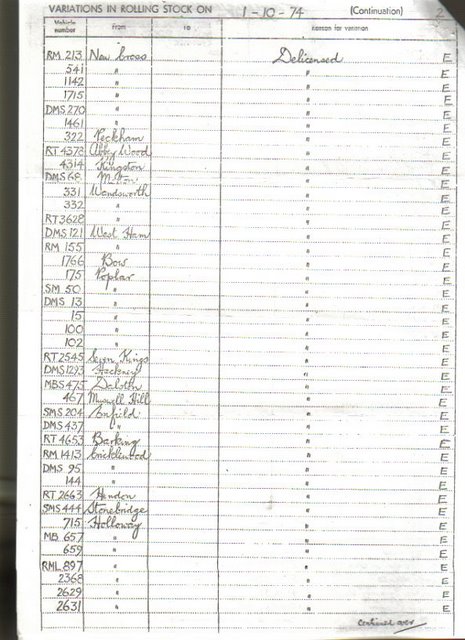 VARIATIONS IN ROLLING STOCK ON 1-10-74 (Continuation) 2
Vehicle number From To Reason for variation
RM 213 New Cross Delicensed E
541 " " E
1142 " " E
1715 " " E
DMS 270 " " E
1461 " " E
322 Peckham " E
RT 4378 Abby Wood " E
4314 Kingston " E
DMS 68 Merton " E
331 Wandsworth " E
332 " " E
RT 3628 " " E
DMS 121 West Ham " E
RM 155 " " E
1766 Bow " E
175 Poplar " E
SM 50 " " E
DMS 13 " " E
15 " " E
100 " " E
102 " " E
RT 2545 Seven Kings " E
DMS 1293 Hackney " E
MBS 475 Dalston " E
467 Muswell Hill " E
SMS 204 Enfield " E
DMS 437 " " E
RT 4653 Barking " E
RM 1413 Cricklewood " E
DMS 95 " " E
144 " " E
RT 2663 Hendon " E
SMS 444 Stonebridge " E
715 Holloway " E
MB 657 " " E
659 " " E
RML 897 " " E
2368 " " E
2629 " " E
2631 " " E
Continued over